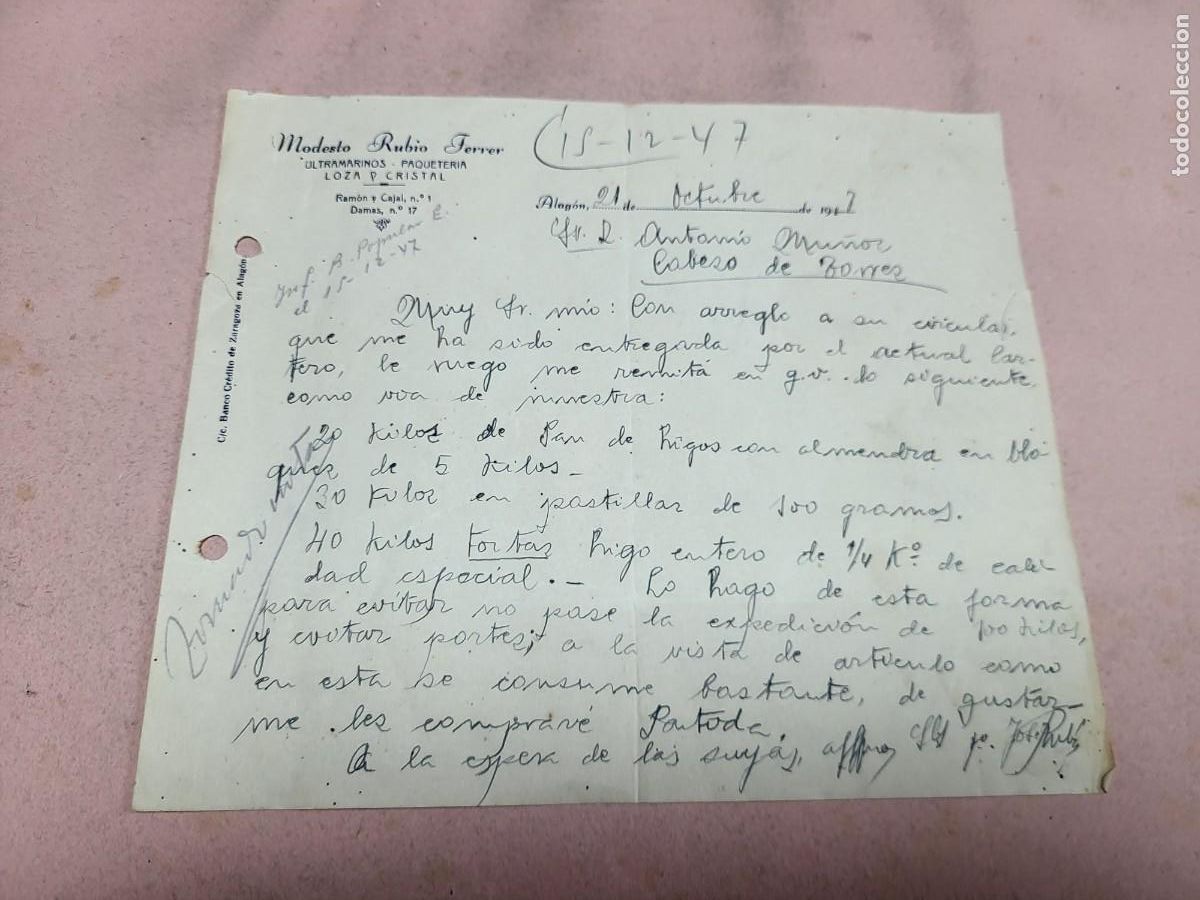 Modesto Rubio Ferrer
ULTRAMARINOS - PAQUETERIA
LOZA Y CRISTAL
Ramón y Cajal, n.º 1
Damas, n.º 17
15-12-47
Alagón, 21 de Octubre de 1947
Sr. D. Antonio Muñoz
Cabezo de Torres
Inf. B. Popular E.
el 15-12-47
C/c. Banco Crédito de Zaragoza en Alagón
Muy Sr. mio: Con arreglo a su circular,
que me ha sido entregada por el actual Car-
tero, le ruego me remitá en g.v. lo siguiente,
como via de muestra:
20 Kilos de Pan de Higos con almendra en blo-
ques de 5 Kilos-
30 Kilos en pastillas de 100 gramos.
40 Kilos tortas Higo entero de 1/4 Kº de cali-
dad especial. - Lo hago de esta forma
para evitar no pase la expedición de 100 Kilos,
y evitar portes; a la vista de articulo como
en esta se consume bastante, de gustar-
me les compraré Partida.
A la espera de las suyas, affmo
Tomando nota
todocoleccion